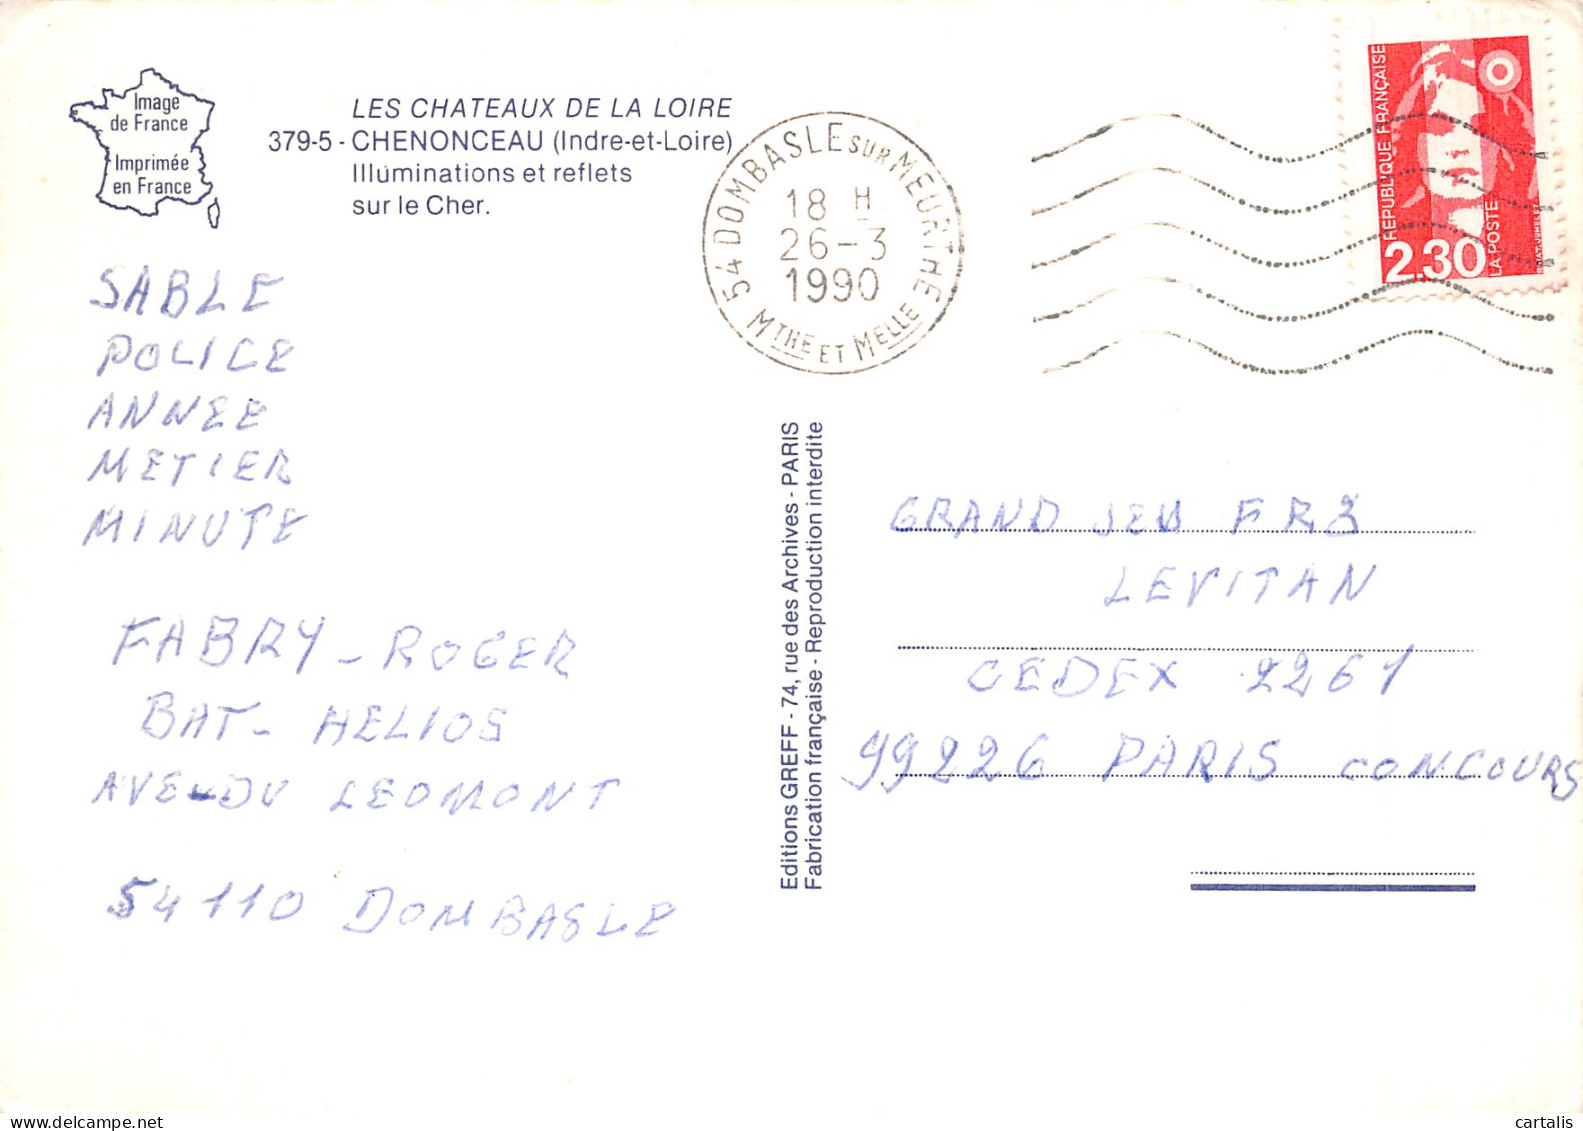 Image
de France
Imprimée
en France
LES CHATEAUX DE LA LOIRE
379-5 - CHENONCEAU (Indre-et-Loire)
Illuminations et reflets
sur le Cher.
54 DOMBASLE SUR MEURTHE
18 H
26-3
1990
MTHE ET MELLE
REPUBLIQUE FRANÇAISE
2.30
LA POSTE
SABLE
POLICE
ANNEE
METIER
MINUTE
FABRY - ROGER
BAT - HELIOS
AVE - DU LEOMONT
54110 DOMBASLE
Editions GREFF - 74, rue des Archives - PARIS
Fabrication française - Reproduction interdite
GRAND JEU FR3
LEVITAN
CEDEX 2261
99226 PARIS CONCOURS
delcampe.net
cartalis